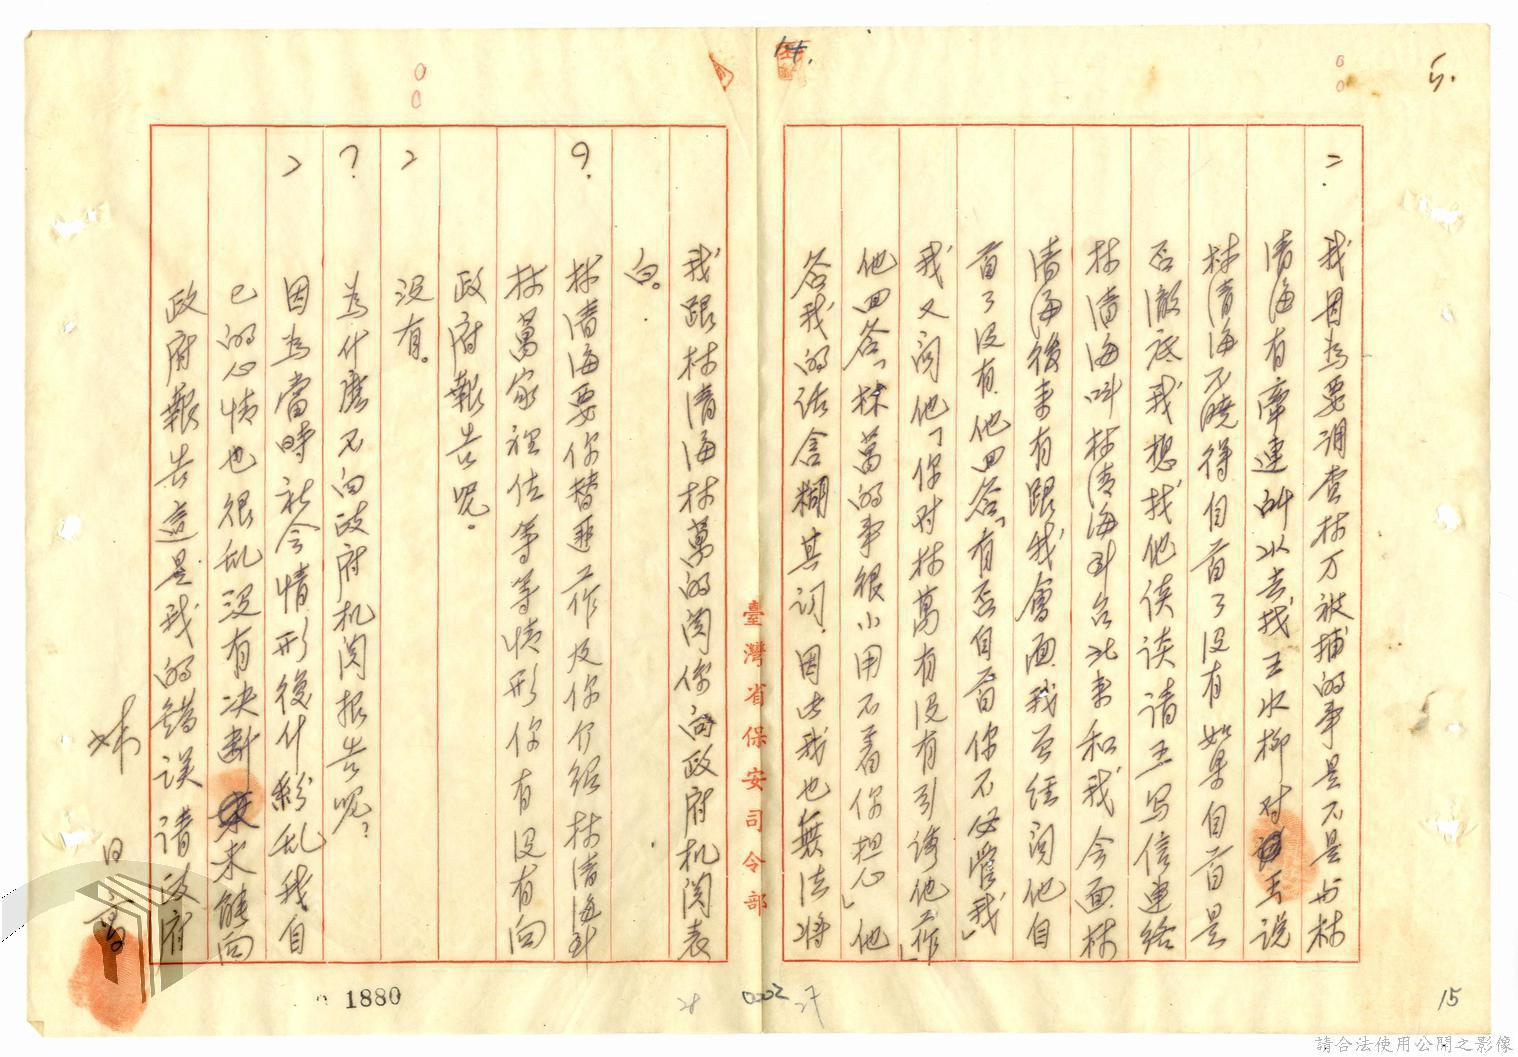 5.
二.
我因為要調查林万被捕的事是不是与林
清海有牽連叫水去找王水柳对王說
林清海不曉得自首了沒有如果自首是
否澈底我想找他談談請王写信連絡
林清海叫林清海到台北来和我会面林
清海後来有跟我會面我曾經问他自
首了沒有他回答「有否自首你不必管我」
我又问他「你对林萬有沒有引誘他工作」
他回答「林萬的事很小用不着你担心」他
答我的话含糊其词.因此我也無法将
臺灣省保安司令部
我跟林清海林萬的関係向政府机関表
白。
？
林清海要你替匪工作及你介紹林清海到
林萬家裡住等等情形你有沒有向
政府報告呢。
二
沒有。
？
為什麼不向政府机関报告呢？
二
因為當時社会情形後什紛乱我自
己的心情也很乱沒有决断未能向
政府報告這是我的錯误请政府
1880
0002
27
28
15
請合法使用公開之影像